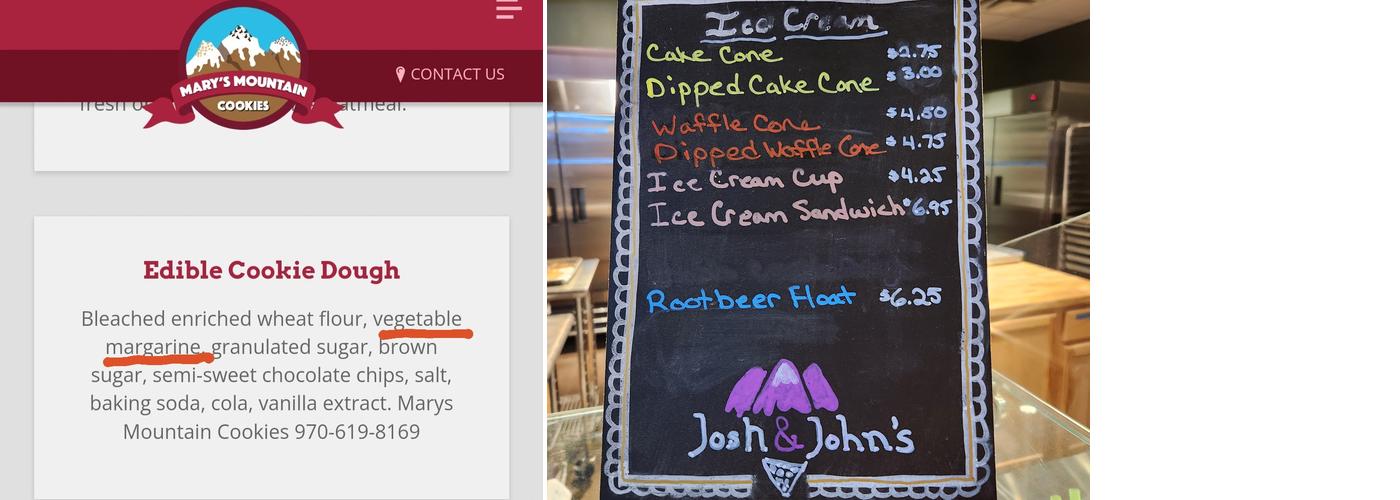 MARY'S MOUNTAIN
COOKIES
CONTACT US
fresh
Edible Cookie Dough
Bleached enriched wheat flour, vegetable
margarine, granulated sugar, brown
sugar, semi-sweet chocolate chips, salt,
baking soda, cola, vanilla extract. Marys
Mountain Cookies 970-619-8169
Ice Cream
Cake Cone $2.75
Dipped Cake Cone $3.00
Waffle Cone $4.50
Dipped Waffle Cone $4.75
Ice Cream Cup $4.25
Ice Cream Sandwich $6.95
Rootbeer Float $6.25
Josh & John's